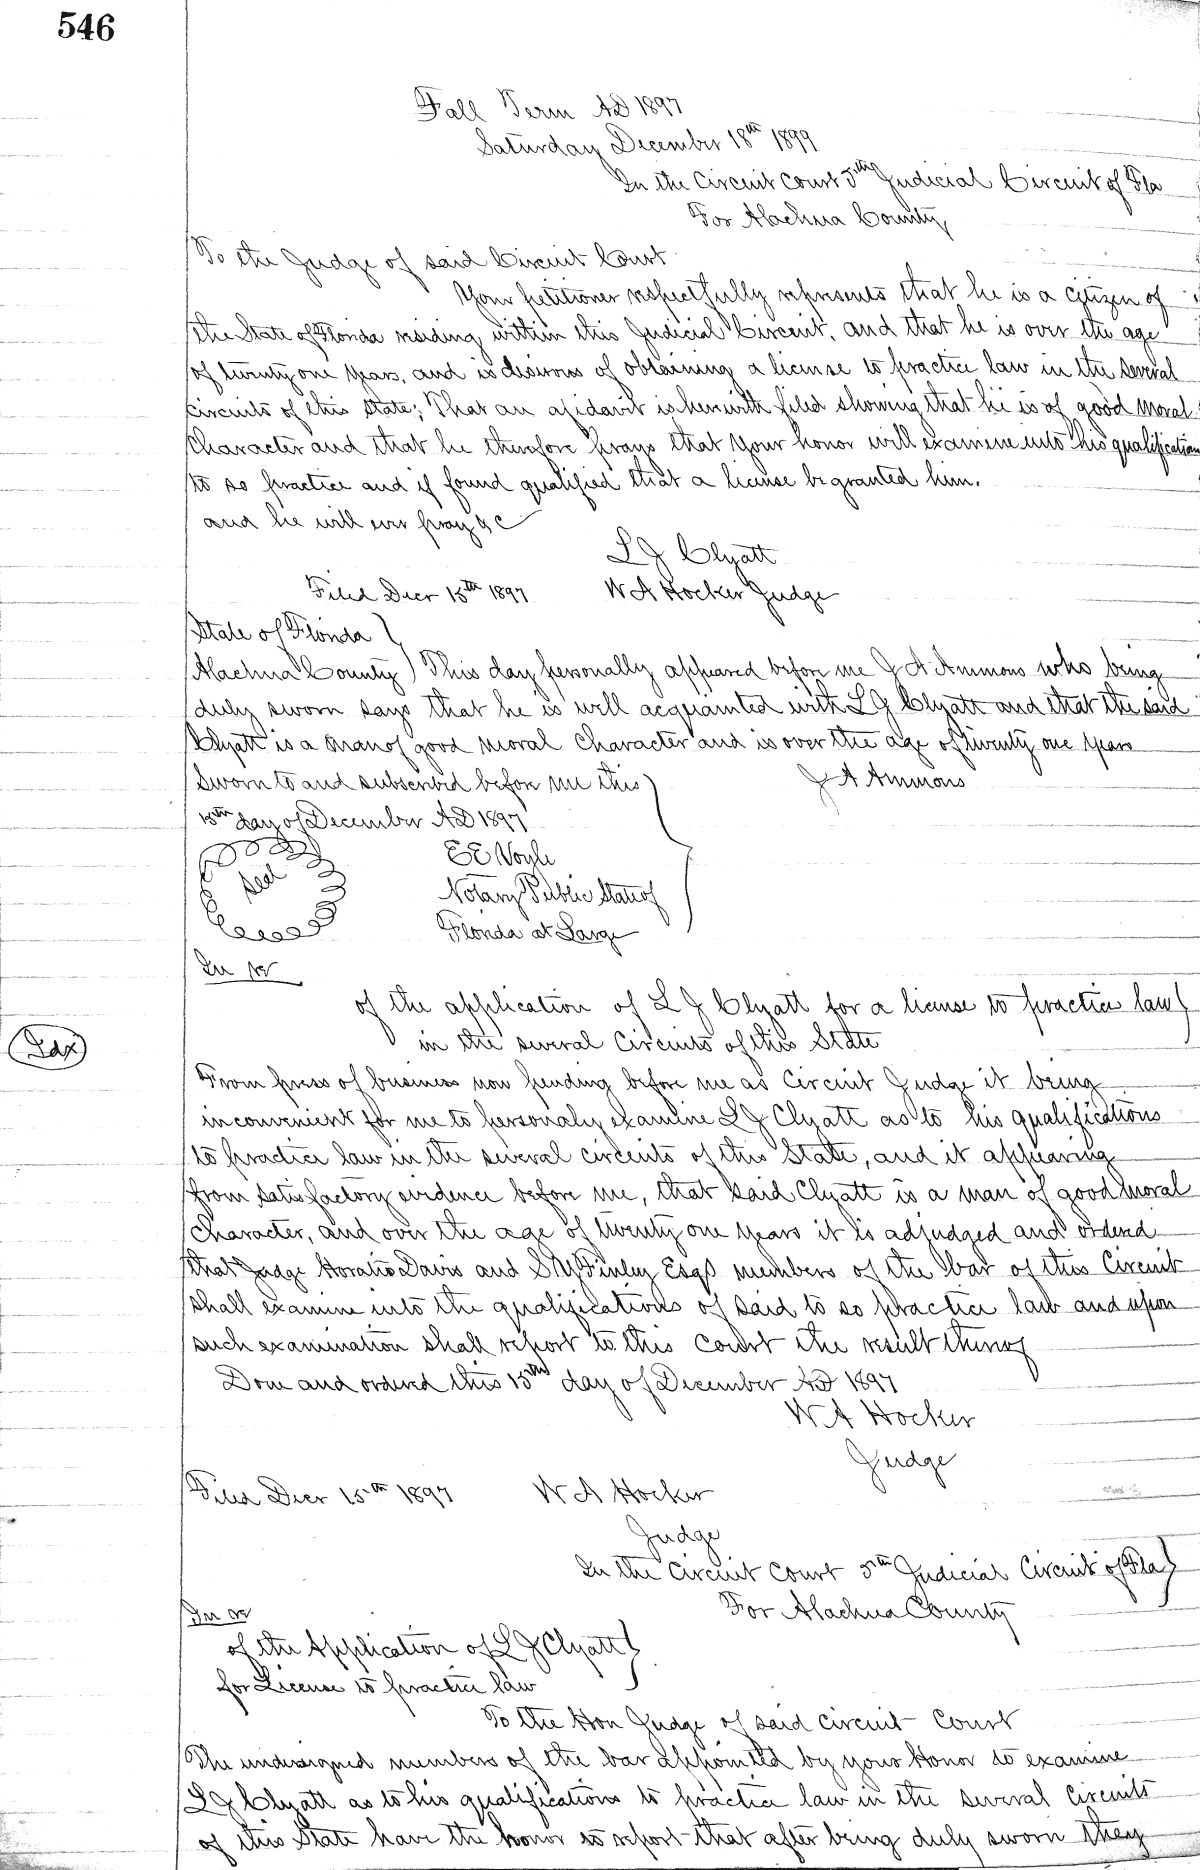 546
Fall Term AD 1897
Saturday December 18th 1899
In the Circuit Court 5th Judicial Circuit of Fla
For Alachua County
To the Judge of said Circuit Court
Your petitioner respectfully represents that he is a citizen of
the State of Florida residing within this Judicial Circuit, and that he is over the age
of twenty one years, and is desirous of obtaining a license to practice law in the several
circuits of this State; That an afidavit is herewith filed showing that he is of good moral
character and that he therefore prays that your honor will examine into his qualification
to so practice and if found qualified that a license be granted him.
and he will ever pray &c
L J Clyatt
Filed Decr 15th 1897 W A Hocker Judge
State of Florida }
Alachua County } This day personally appeared before me J A Ammons who being
duly sworn says that he is well acquainted with L J Clyatt and that the said
Clyatt is a man of good moral character and is over the age of twenty one years
Sworn to and subscribed before me this J A Ammons
15th day of December AD 1897
Seal E E Voyle
Notary Public State of
Florida at Large
In re
of the application of L J Clyatt for a license to practice law }
in the several circuits of this State
Idx
From press of business now pending before me as Circuit Judge it being
inconvenient for me to personaly examine L J Clyatt as to his qualifications
to practice law in the several circuits of this State, and it appearing
from satisfactory evidence before me, that said Clyatt is a man of good moral
character, and over the age of twenty one years it is adjudged and ordered
that Judge Horatio Davis and S Y Finley Esqs members of the bar of this Circuit
shall examine into the qualifications of said to so practice law and upon
such examination shall report to this Court the result thereof
Done and ordered this 15th day of December AD 1897
W A Hocker
Judge
Filed Decr 15th 1897 W A Hocker
Judge
In the Circuit Court 5th Judicial Circuit of Fla }
For Alachua County
In re
of the Application of L J Clyatt }
for License to practice law
To the Hon Judge of said circuit Court
The undersigned members of the bar appointed by your Honor to examine
L J Clyatt as to his qualifications to practice law in the several circuits
of this State have the honor to report that after being duly sworn they